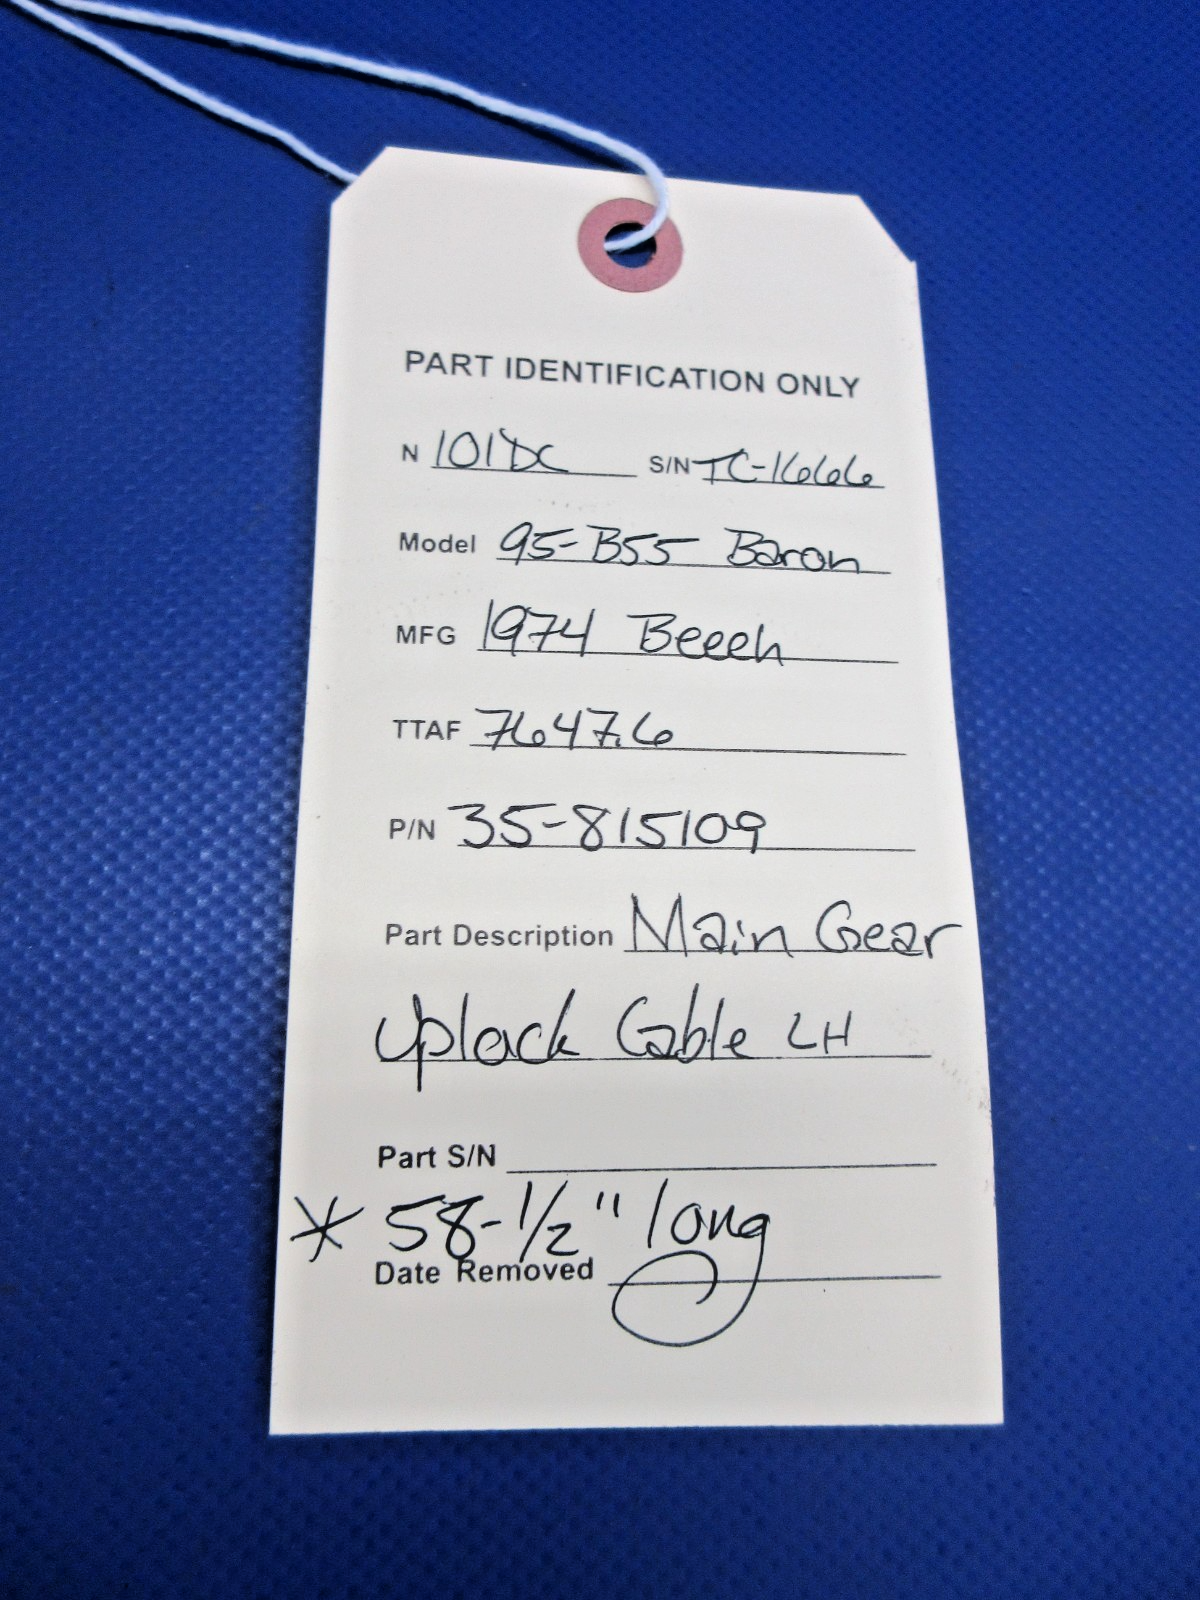 PART IDENTIFICATION ONLY
N 101DC S/N TC-1666
Model 95-B55 Baron
MFG 1974 Beech
TTAF 7647.6
P/N 35-815109
Part Description Main Gear
Uplock Cable LH
Part S/N
* 58-1/2" long
Date Removed